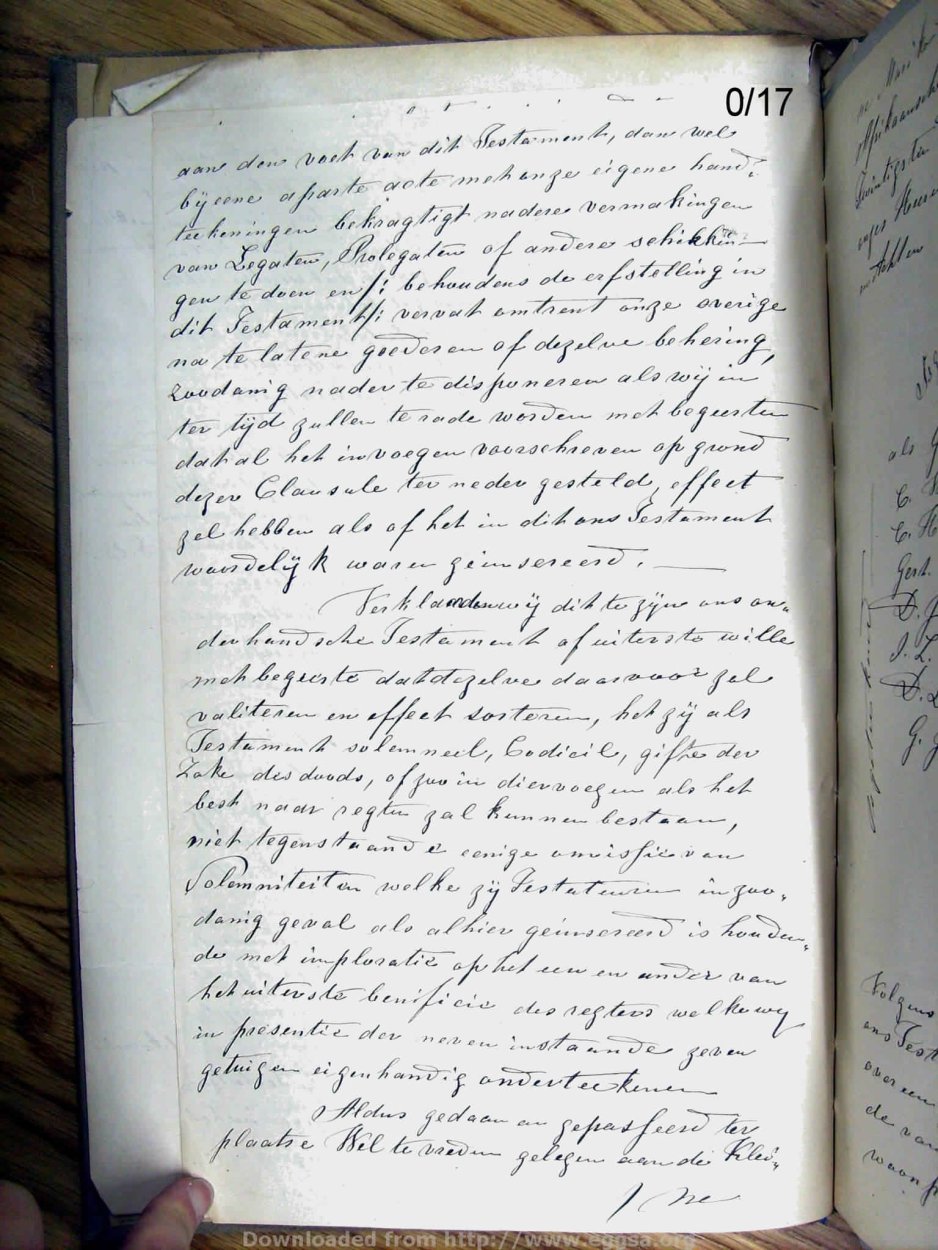 0/17
aan den voet van dit Testament, dan wel
bij eene aparte acte met onze eigene hand:
teekeningen bekragtigt nadere vermakingen
van Legaten, Prolegaten of andere schikkin
gen te doen en /: behoudens de erfstelling in
dit Testament /: vervat omtrent onze overige
na te latene goederen of dezelve behering,
zoodanig nader te disponeren als wij in
ter tijd zullen te rade worden met begeerten
dat al het invoegen voorschreven op grond
dezer Clausule ter neder gesteld, effect
zal hebben als of het in dit ons Testament
woordelijk waren geinsereerd.
Verklaarden wij dit te zijne ons on„
derhandsche Testament of uiterste wille
met begeerte dat dezelve daarvoor zal
valiteren en effect sorteren, het zij als
Testament solemneel, Codicil, gifte der
Zake des doods, of zoo in diervoegen als het
best naar regten zal kunnen bestaan,
niet tegenstaande eenige omissie van
Solemniteiten welke zij Testateuren in zoo„
danig geval als alhier geinsereerd is houden„
de met imploratie op het een en ander van
het uiterste benificie des regters welke wij
in presentie der neven instaande zeven
getuigen eigenhandig onderteekenen
Aldus gedaan en gepasseerd ter
plaatse Wel te vreden gelegen aan de Klei„
/ ne
Afrikaansch
Twintigsten
onzes Heeren
Achtien
als G
C.
C. H
Gert.
D. J
J. L.
D. L
G. J
Volgens
ons Test
over een
de van
woon p
Downloaded from http://www.eggsa.org